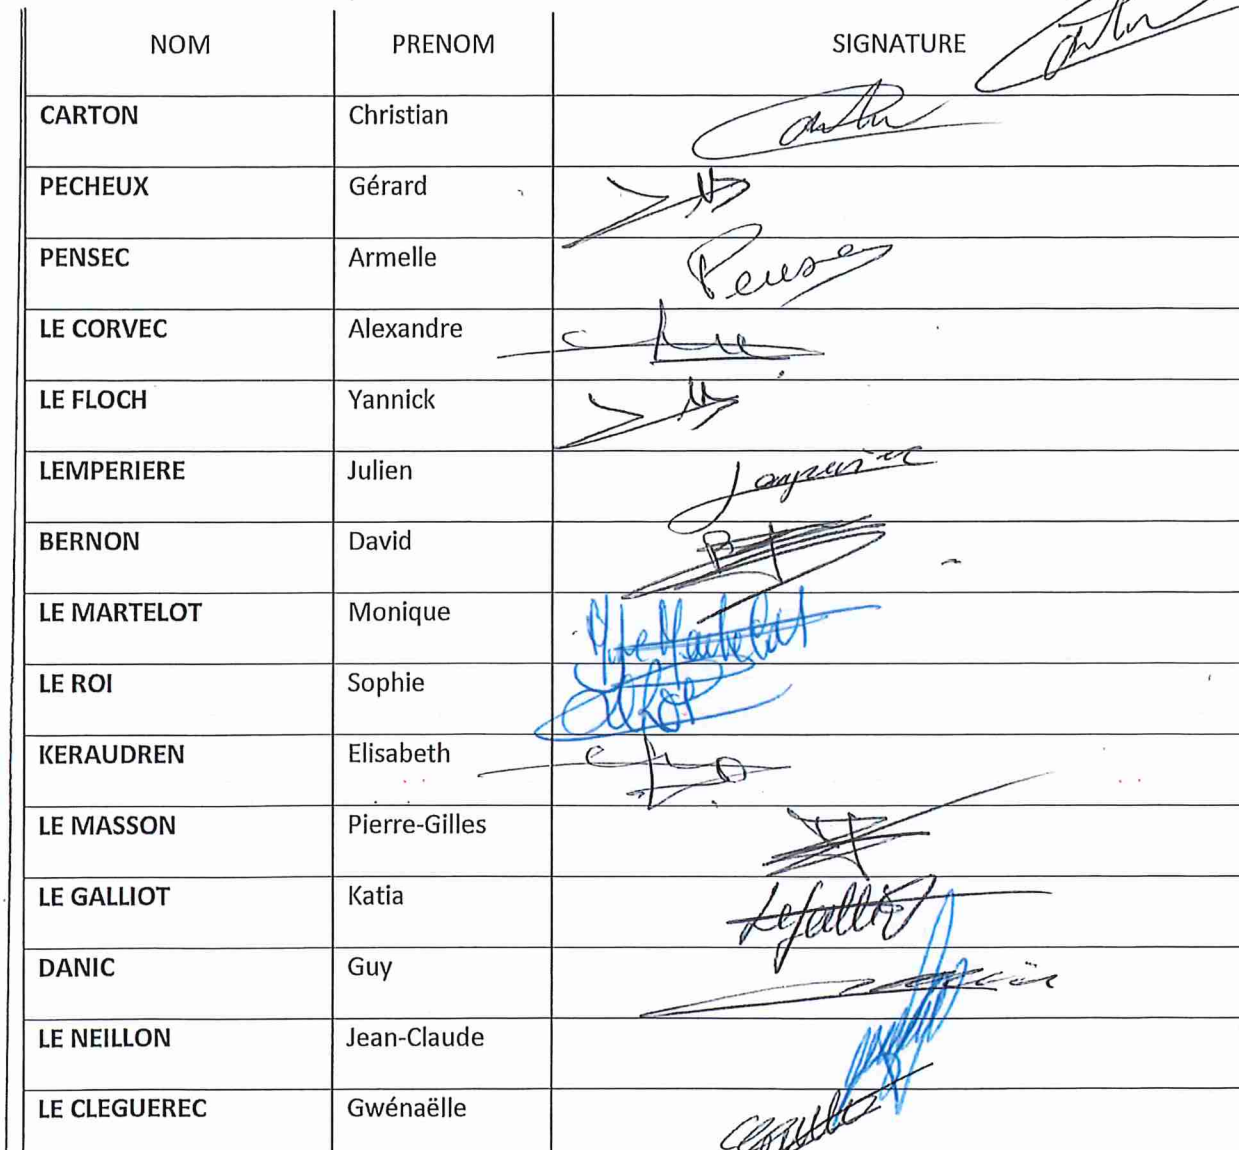 NOM PRENOM SIGNATURE
CARTON Christian
PECHEUX Gérard
PENSEC Armelle
LE CORVEC Alexandre
LE FLOCH Yannick
LEMPERIERE Julien
BERNON David
LE MARTELOT Monique
LE ROI Sophie
KERAUDREN Elisabeth
LE MASSON Pierre-Gilles
LE GALLIOT Katia
DANIC Guy
LE NEILLON Jean-Claude
LE CLEGUEREC Gwénaëlle